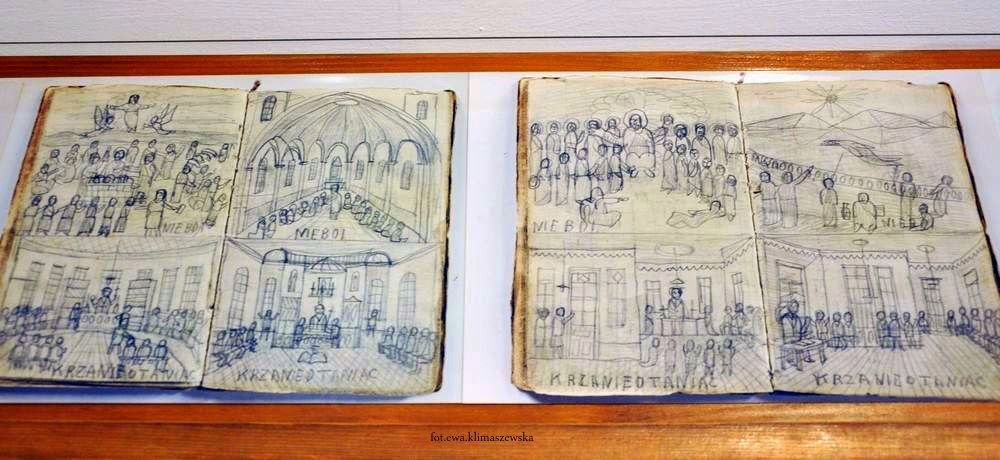 NIEBOI
NIEBOI
KRZANIEOTANIAC
KRZANIEOTANIAC
NIEBOI
NIEBOI
KRZANIEOTANIAC
KRZANIEOTANIAC
fot.ewa.klimaszewska